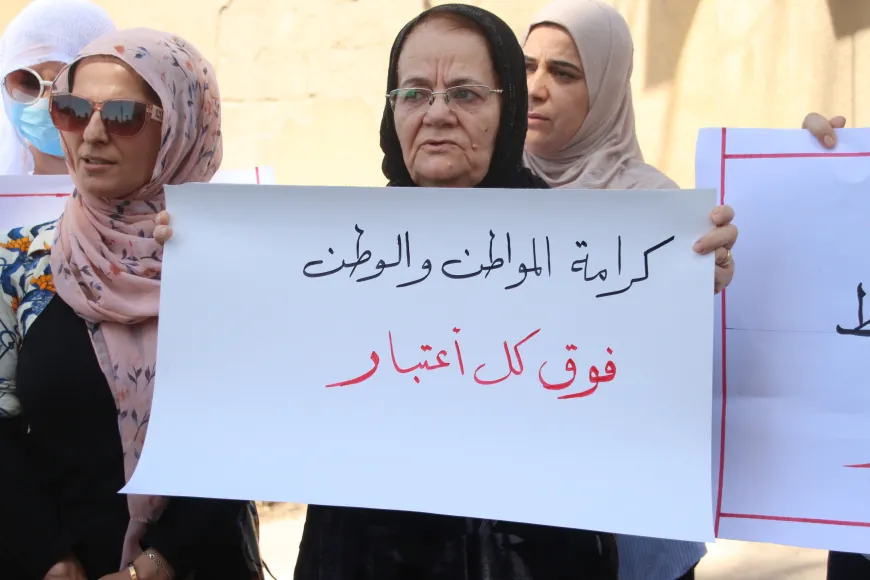 كرامة المواطن والوطن
فوق كل أعتبار